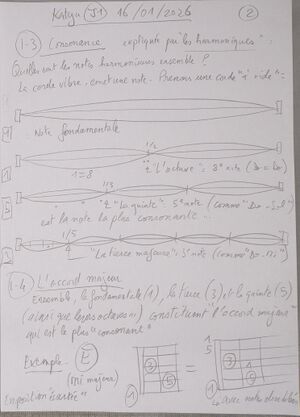 Katya (J1) 16/01/2026 (2)
1-3) Consonance expliquée par les "harmoniques":
Quelles sont les notes harmonieuses ensemble ?
La corde vibre, émet une note. Prenons une corde "à vide" =
1 Note fondamentale
1/2
1 1=8 "L'octave": 8° note (Do - Do)
1/3
5 "La quinte": 5° note (comme "Do - Sol")
est la note la plus consonante...
1/5
3 "La tierce majeure": 3° note (comme "Do - Mi")
1-4) L'accord majeur
Ensemble, la fondamentale (1), la tierce (3) et la quinte (5)
(ainsi que les octaves) constituent l'accord majeur
qui est le plus "consonant"
Exemple: E
(mi majeur)
3
5
1
=
1
5
3
5
1
Exposition "écartée"
avec note